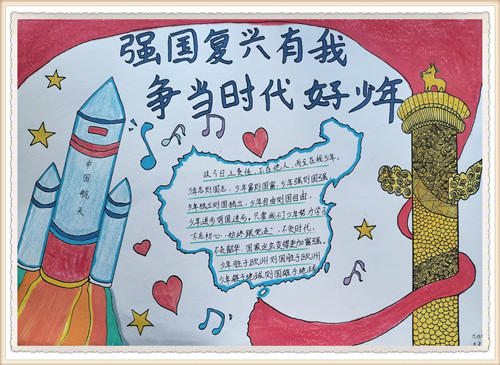 强国复兴有我
争当时代好少年
中国航天
故今日之责任,不在他人,而全在我少年。
少年志则国志,少年富则国富,少年强则国强
少年独立则国独立,少年自由则国自由,
少年进步则国进步。只要我们少年努力学习
"不忘初心,始终跟党走",不负时代,
不负韶华,国家定会变得更加富强。
少年胜于欧洲则国胜于欧洲
少年雄于地球则国雄于地球